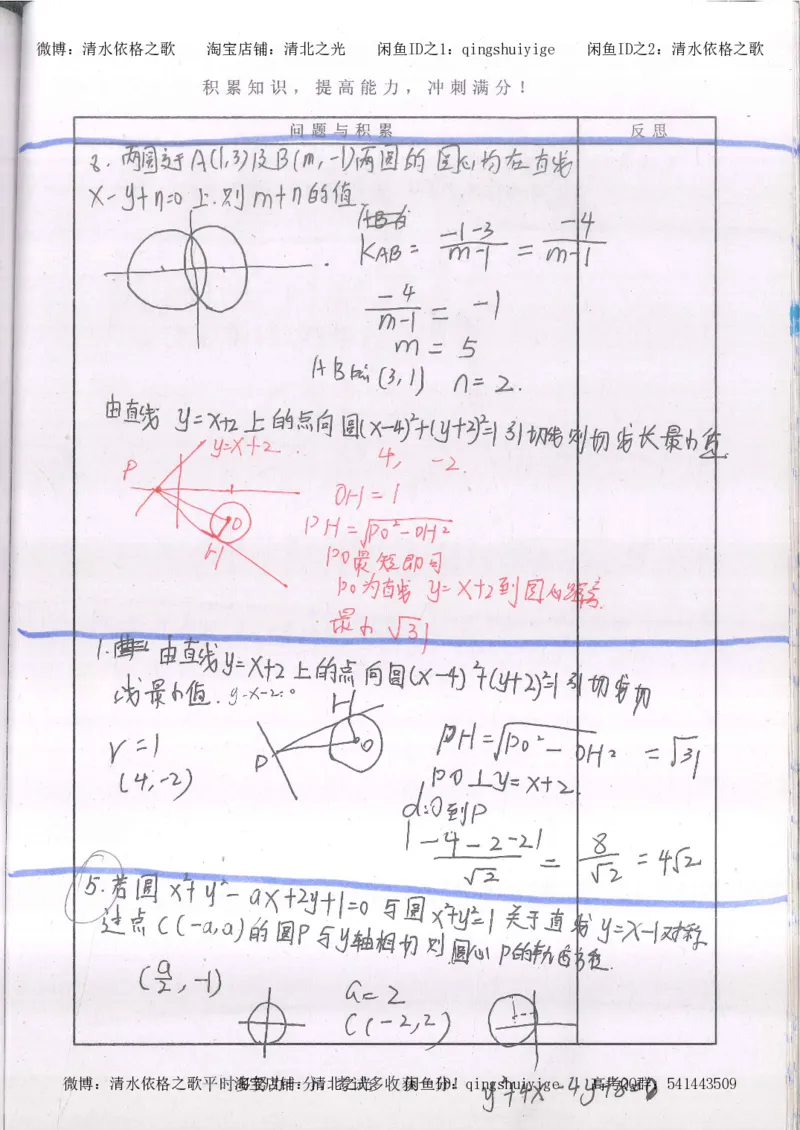 微博：清水依格之歌 淘宝店铺：清北之光 闲鱼ID之1：qingshuiyige 闲鱼ID之2：清水依格之歌
积累知识，提高能力，冲刺满分！
问题与积累 反思
8. 两圆交于A(1,3)及B(m,-1)两圆的圆心均在直线
x-y+n=0上.则m+n的值
K_AB = (-1-3)/(m-1) = (-4)/(m-1)
(-4)/(m-1) = -1
m = 5
AB (3,1) n=2.
由直线 y=x+2上的点向圆(x-4)²+(y+2)²=1引切线则切线长最小值
y=x+2
4, -2
P
O
H
OH=1
PH=√(PO²-OH²)
PO最短即可
PO为直线 y=x+2到圆心距离
最小 √31
1. 由直线y=x+2上的点向圆(x-4)²+(y+2)²=1引切线切
线最小值.
H
O
P
r=1
(4,-2)
PH=√(PO²-OH²) =√31
PO⊥y=x+2.
d:O到P
|-4-2-2|/√2 = 8/√2 = 4√2
5. 若圆 x²+y²-ax+2y+1=0与圆x²+y²=1关于直线y=x-1对称
过点C(-a,a)的圆P与y轴相切则圆心P的轨迹方程.
(a/2,-1)
a=2
C(-2,2)
微博：清水依格之歌 淘宝店铺：清北之光 闲鱼ID之1：qingshuiyige 高考QQ群：541443509